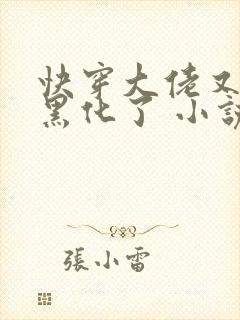 快穿大佬又
黑化了 小說
張小雷